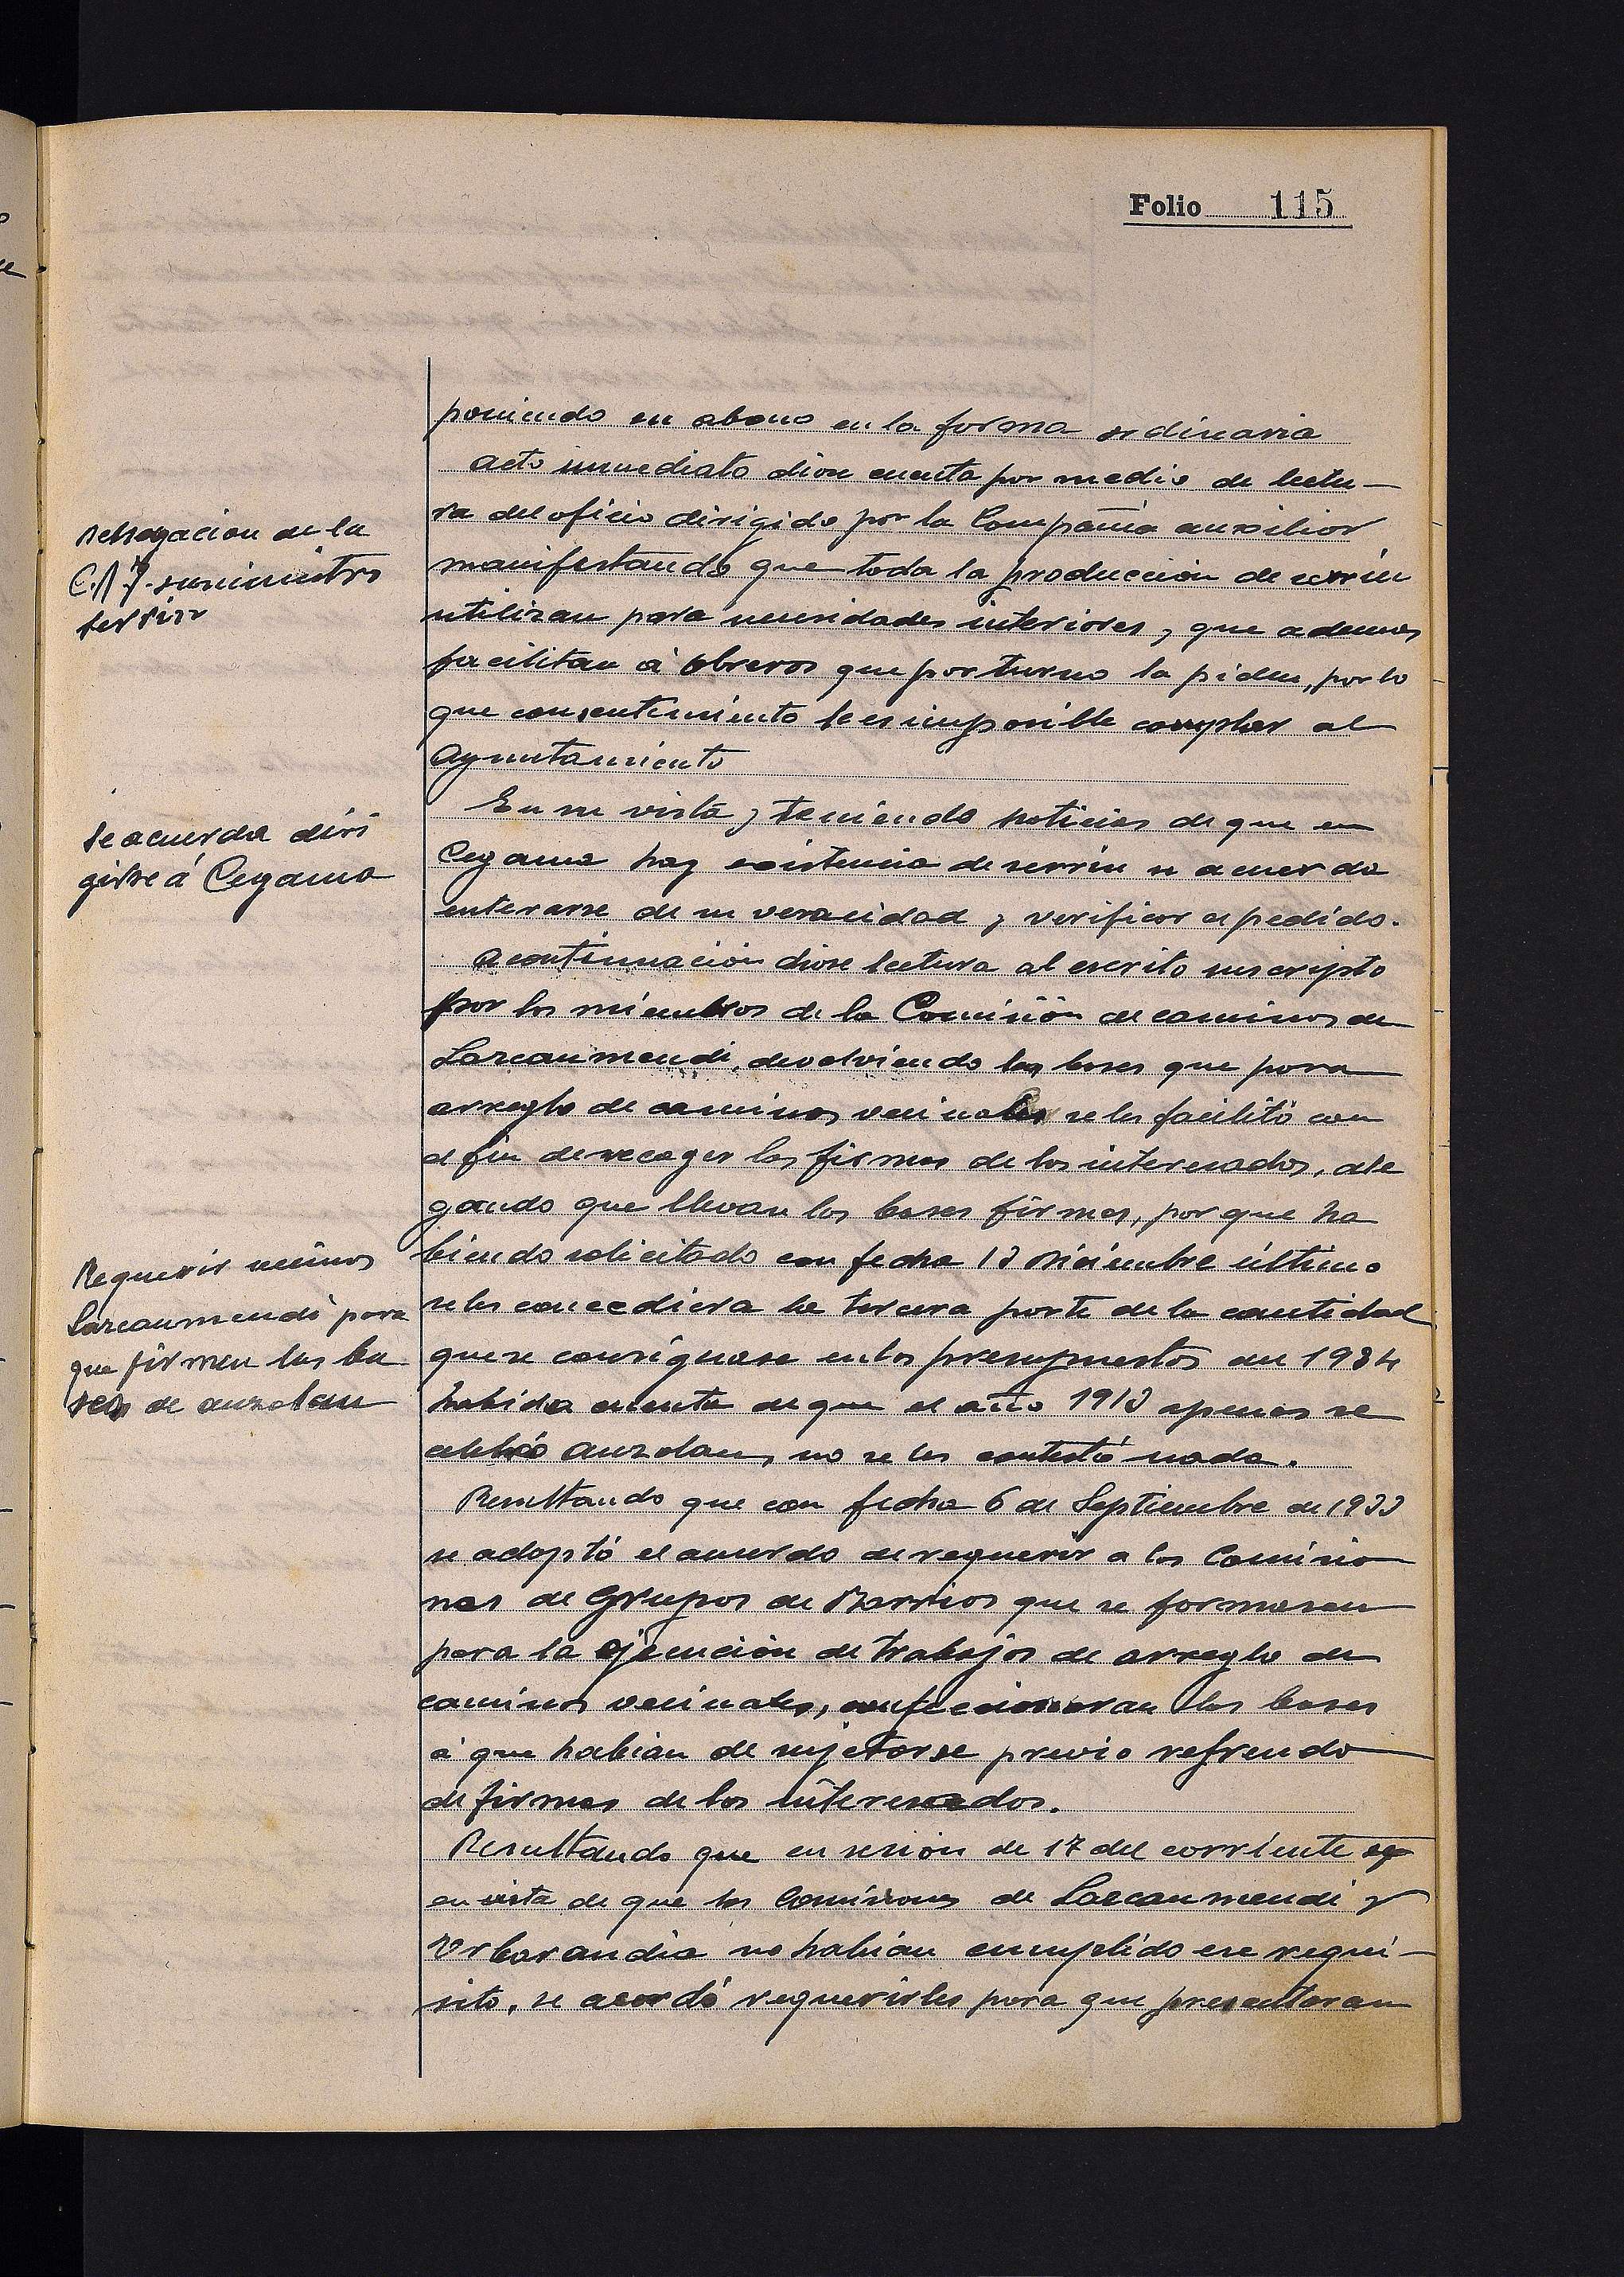 Folio 115
poniendo su abono en la forma ordinaria
Acto inmediato diose cuenta por medio de lectu-
ra del oficio dirigido por la Compañia auxiliar
manifestando que toda la producción de serrín
utilizan para necesidades interiores, y que ademas
facilitan á obreros que por turno la piden, por lo
que consentimiento le es imposible complar al
Ayuntamiento
En su vista y teniendo noticias de que en
Cegama hay existencia de serrín se acuerda
enterarse de su veracidad y verificar el pedido.
A continuación diose lectura al escrito suscripto
por los miembros de la Comisión de caminos de
Lazcaumendi, devolviendo las bases que para
arreglo de caminos vecinales se les facilitó con
el fin de recoger las firmas de los interesados, ale
gando que llevan las bases firmas, por que ha
biendo solicitado con fecha 13 Diciembre último
se les concediera la tercera parte de la cantidad
que se consignase en los presupuestos de 1934
habida cuenta de que el año 1913 apenas se
celebró auzolan, no se les contestó nada.
Resultando que con fecha 6 de Septiembre de 1933
se adoptó el acuerdo de requerir a las Comisio
nes de Grupos de Barrios que se formasen
para la ejecución de trabajos de arreglo de
caminos vecinales, confeccionaran las bases
á que habian de sujetarse previo refrendo
de firmas de los interesados.
Resultando que en sesion de 17 del corriente
en vista de que las Comisiones de Lazcaumendi y
Urbarandia no habian cumplido ese requi-
sito, se acordó requerirles para que presentaran
Denegacion de la
C.A.F. suministro
serrin
Se acuerda diri
girse á Cegama
Requerir vecinos
Lazcaumendi para
que firmen las ba
ses de auzolan